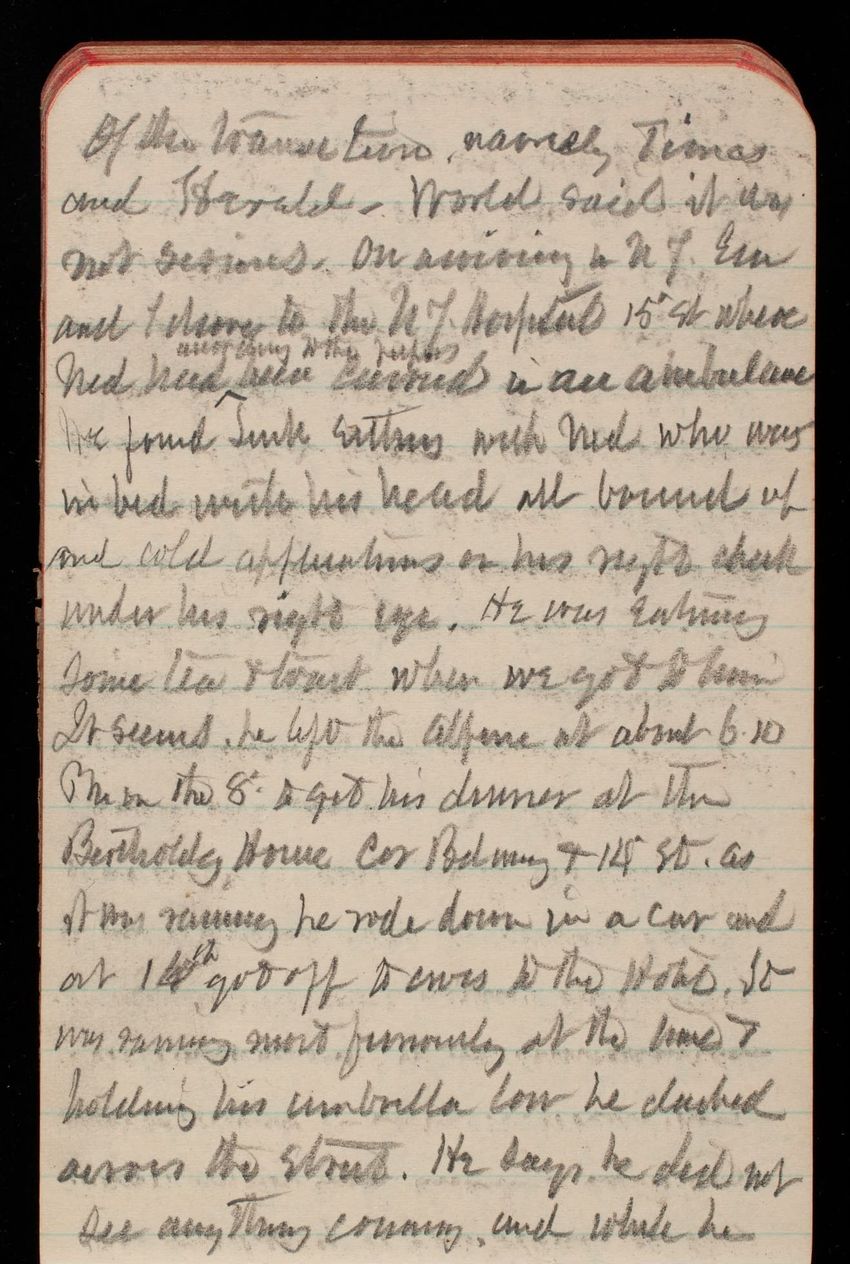 of the transaction, namely Times
and Herald - World said it was
not serious. On arriving in N Y. Em
and I drove to the N Y. Hospital 15 St where
according to the papers
Ned had been carried in an ambulance
We found sitting with Ned who was
in bed with his head all bound up
and cold applications on his right cheek
under his right eye. He was eating
some tea & toast when we got to him
It seems he left the Alpine at about 6.10
PM on the 8th to get his dinner at the
Bartholdy House Cor Bdway & St. as
it was raining he rode down in a car and
at got off to cross to the Hotel. It
was raining most furiously at the time &
holding his umbrella low he dashed
across the street. He says he did not
see anything coming, and while he